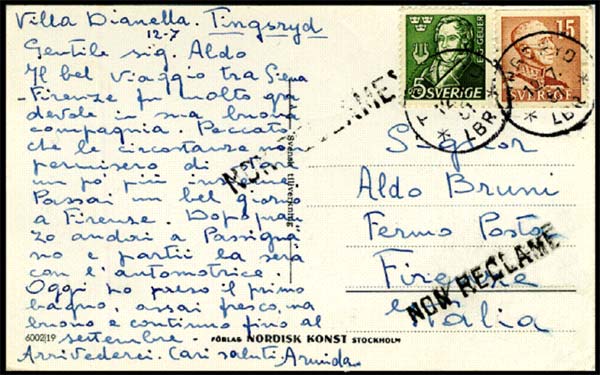 Villa Dianella. Tingsryd
12-7
Gentile sig. Aldo
Il bel viaggio tra Siena
-Firenze fu molto gra
devole in sua buona
compagnia. Peccato
che le circostanze non
permisero di
un po' più
Passai un bel giorno
a Firenze. Dopopran
zo andai a Passigna
no e partii la sera
con l'automotrice.
Oggi ho preso il primo
bagno, assai fresco, ma
buono e continuo fino al
settembre.
Arrivederci. Cari saluti, Armida.
6002/19
FÖRLAG NORDISK KONST STOCKHOLM
Svensk tillverkning
NON RECLAMÉ
E.G. GEIJER
5 SVERIGE
15
SVERIGE
TINGSRYD
LBR
Signor
Aldo Bruni
Fermo Posta
Firenze
NON RECLAMÉ
Italia